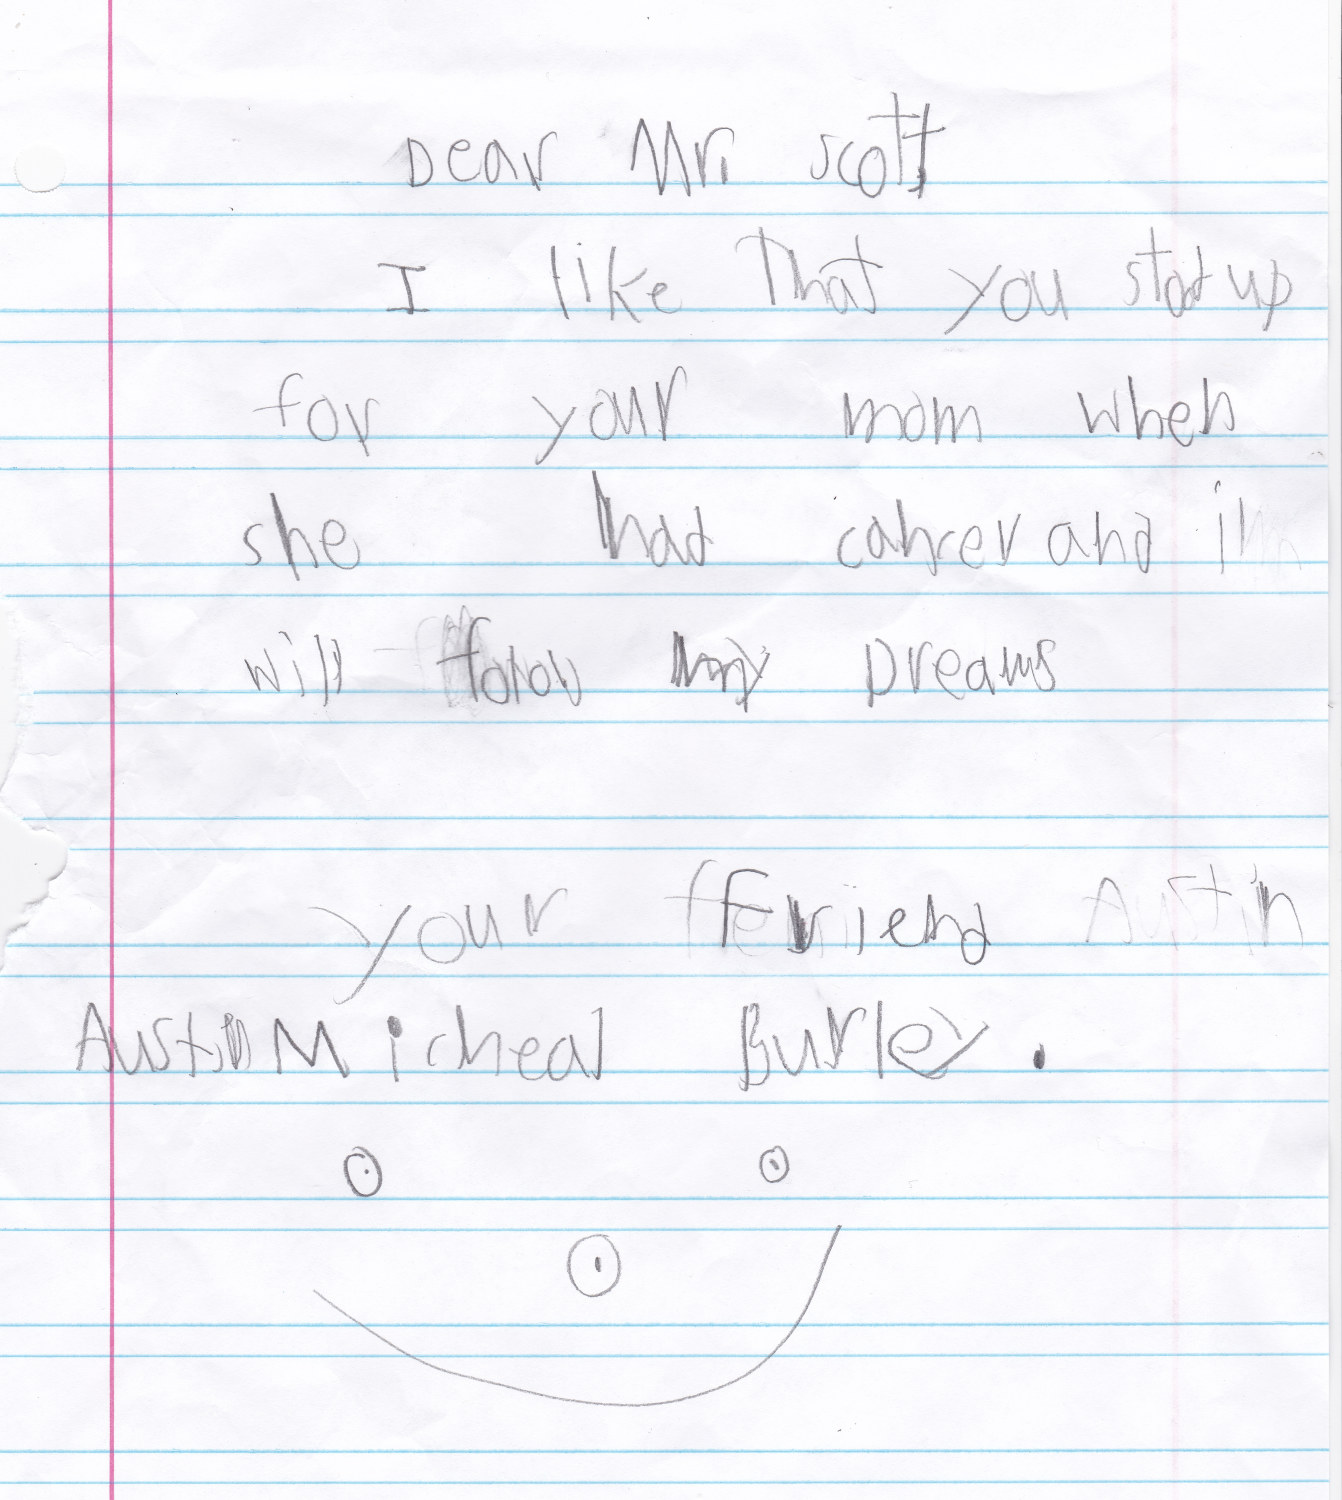 Dear Mr. scott
I like That you stod up
for your mom when
she had cancer and im
will folow my Dreams
your Friend Austin
Austin Micheal Burley.